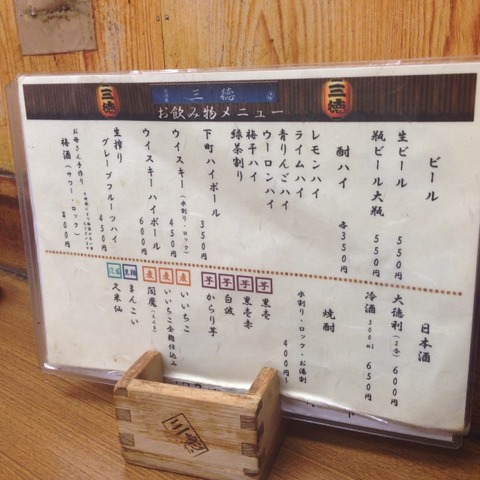 三徳
三徳
三徳
お飲み物メニュー
ビール
生ビール 550円
瓶ビール大瓶 550円
酎ハイ
各350円
レモンハイ
ライムハイ
青りんごハイ
ウーロンハイ
梅干ハイ
緑茶割り
下町ハイボール 350円
ウイスキー(水割り・ロック) 450円
ウイスキーハイボール 600円
生搾り
グレープフルーツハイ 450円
お母さん手作り
梅酒(サワー・ロック) 400円
日本酒
大徳利(2合) 600円
冷酒 300ml 650円
焼酎
水割り・ロック・お湯割
400円~
芋 黒壱
芋 黒壱赤
芋 白波
芋 からり芋
麦 いいちこ
麦 いいちこ全麹仕込み
麦 閻魔
黒糖 まんこい
久米仙
三徳